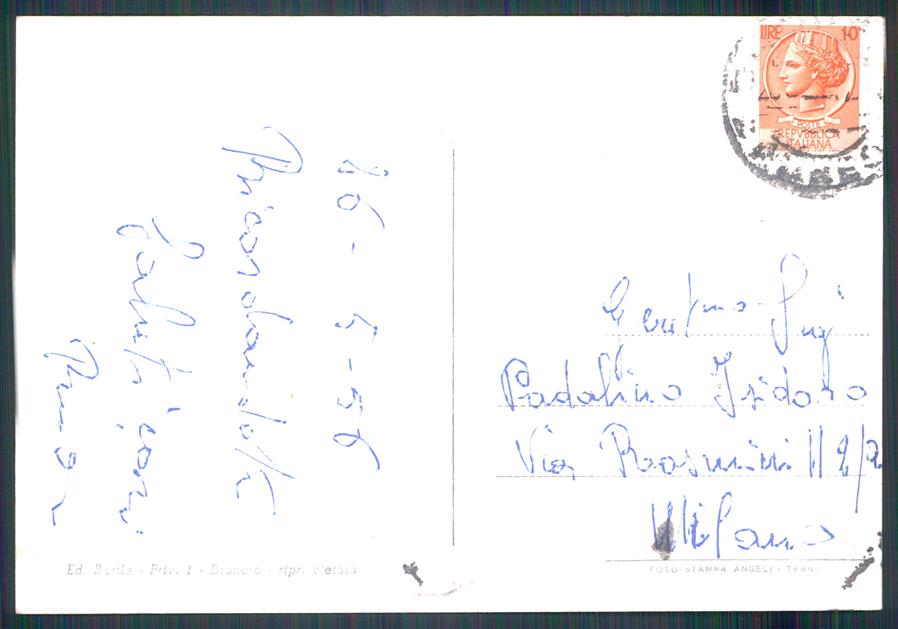 16-5-56
Ricordandoti
saluti cari
LIRE 10
POSTE
REPVBBLICA
ITALIANA
Gent/mo Sig
Padalino Isidoro
Via Rosmini 11 2/a
Milano
Ed. Burile - Priv. 1 - Dronero - ripr. vietata
FOTO-STAMPA ANGELI - TERNI